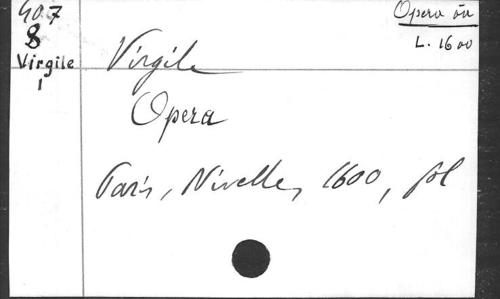 40.7
8
Virgile
1
Opera
L. 1600
Virgile
Opera
Paris, Nivelle, 1600, fol